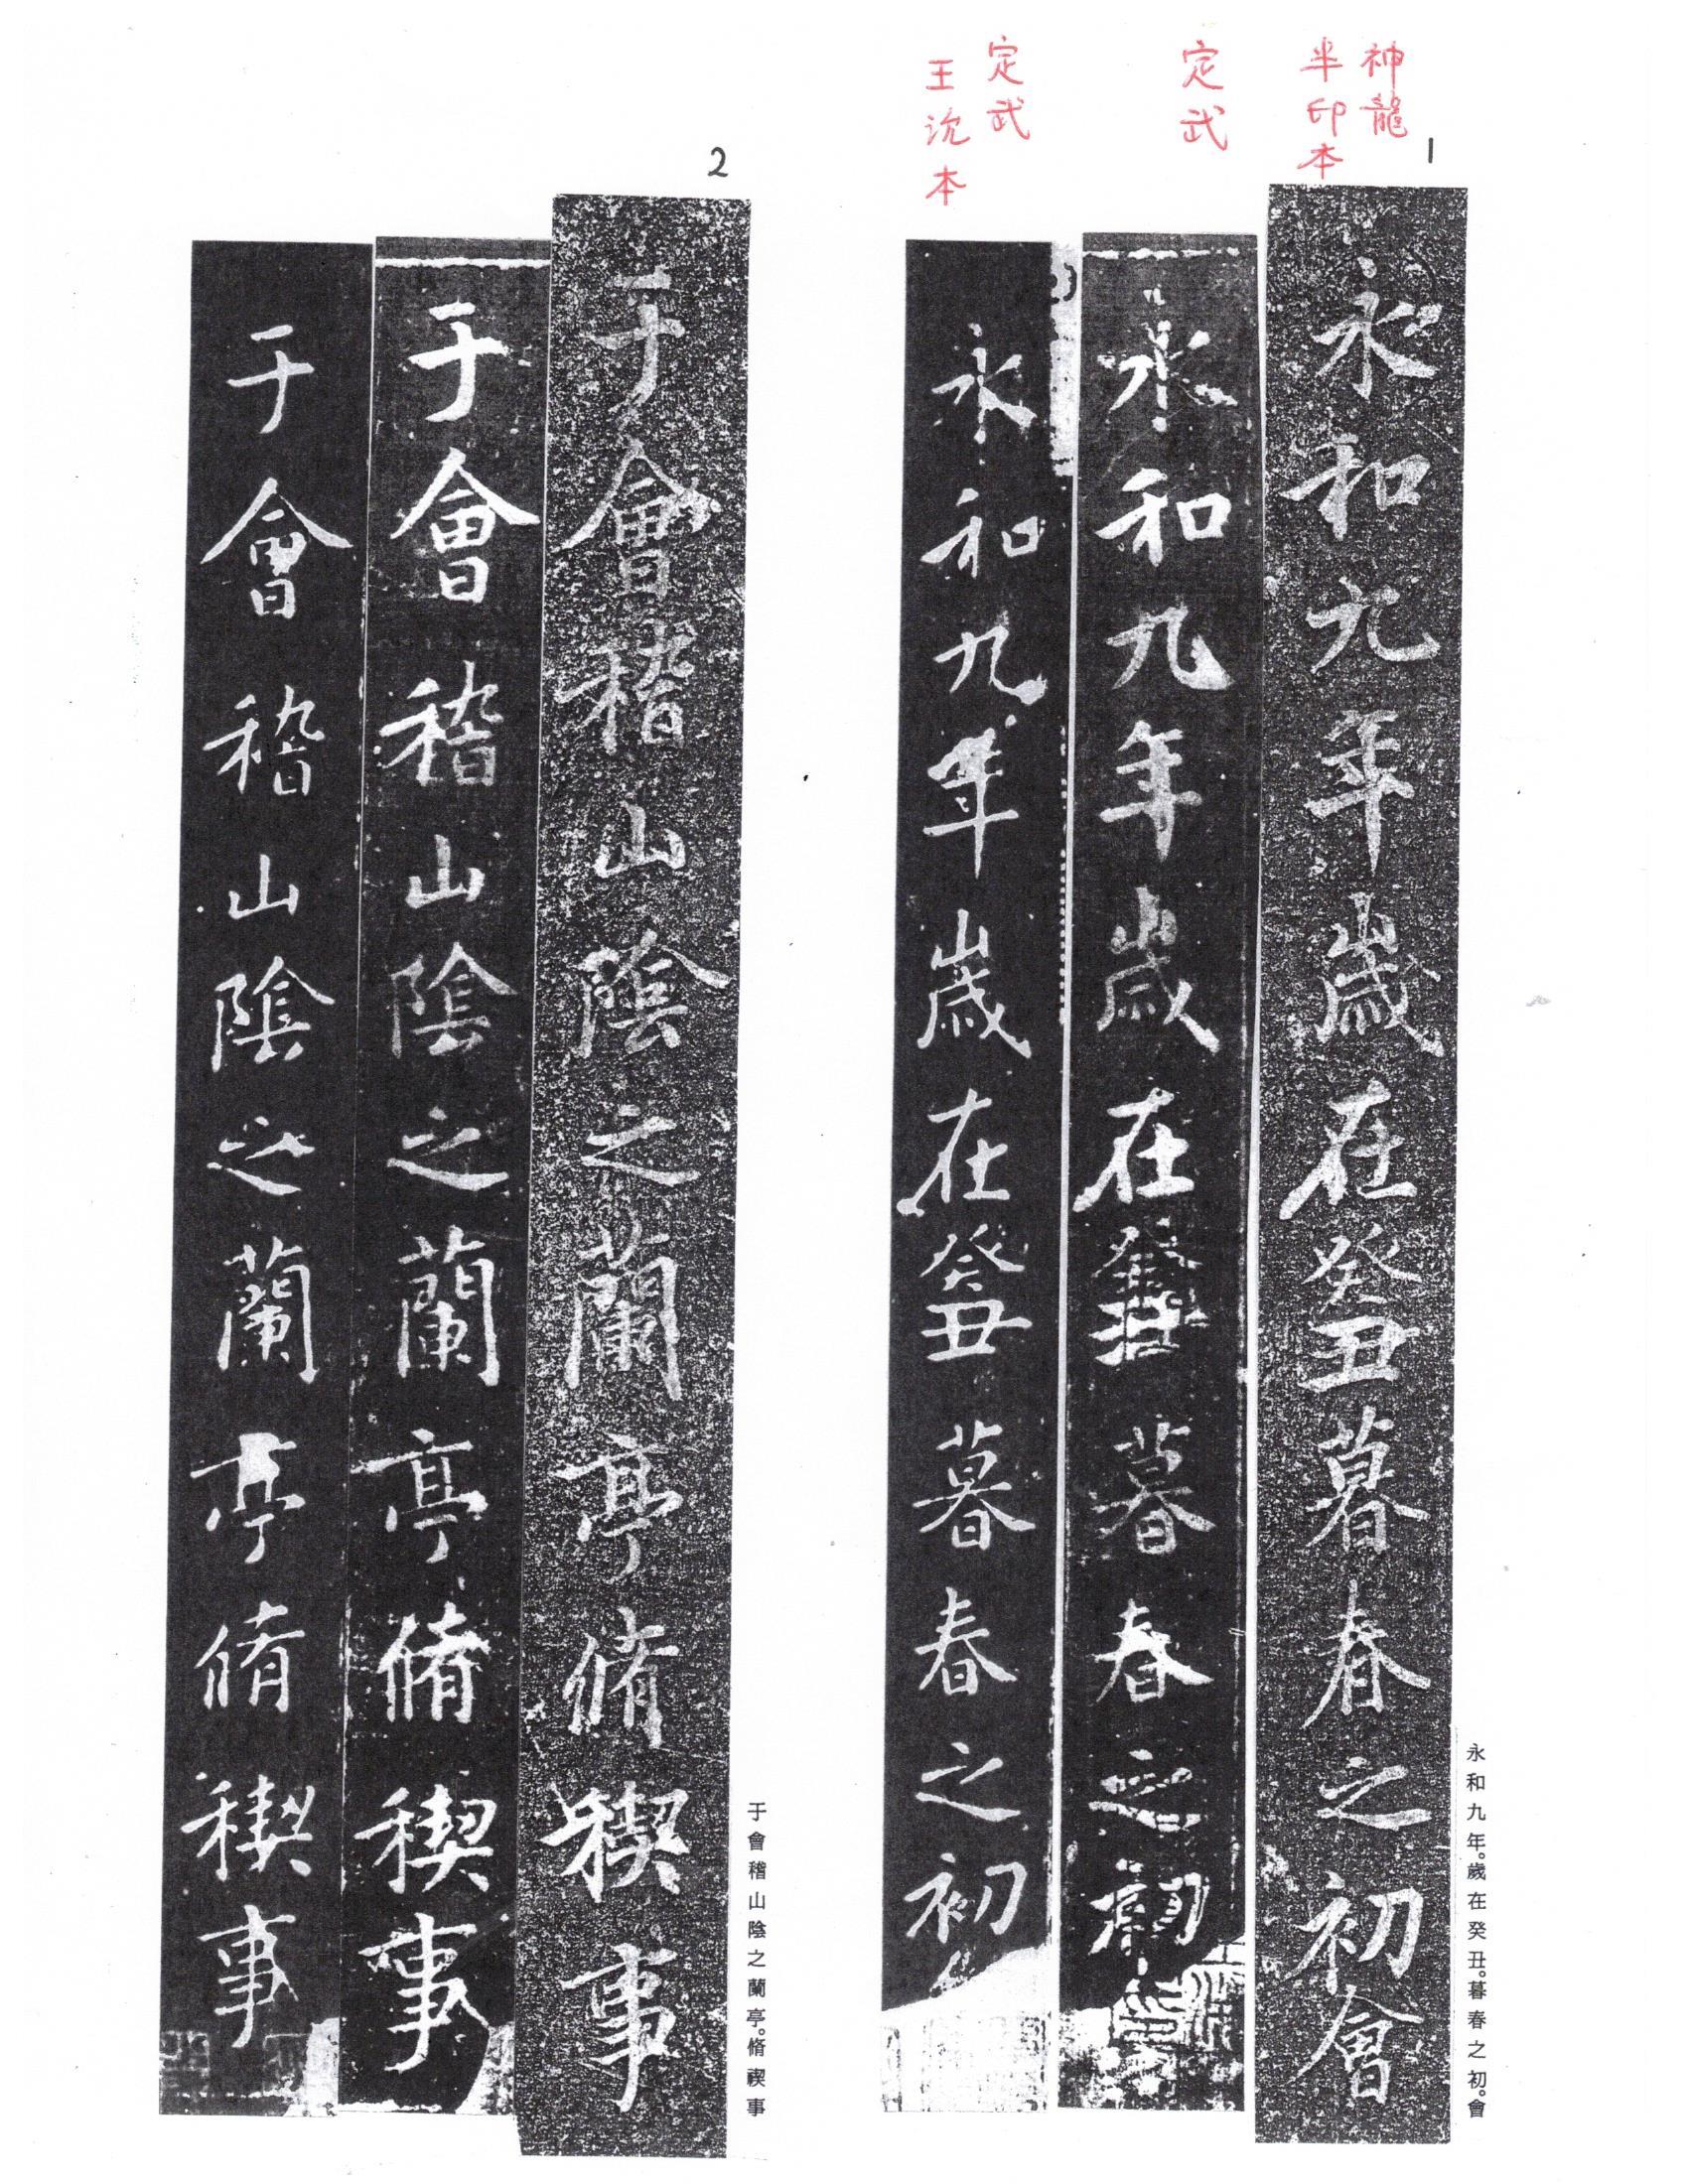 神龍
半印本
定武
定武
王沇本
1
永和九年歲在癸丑暮春之初會
永和九年歲在癸丑暮春之初
永和九年歲在癸丑暮春之初
永和九年。歲在癸丑。暮春之初。會
2
于會稽山陰之蘭亭脩稧事
于會稽山陰之蘭亭脩稧事
于會稽山陰之蘭亭脩稧事
于會稽山陰之蘭亭。脩禊事